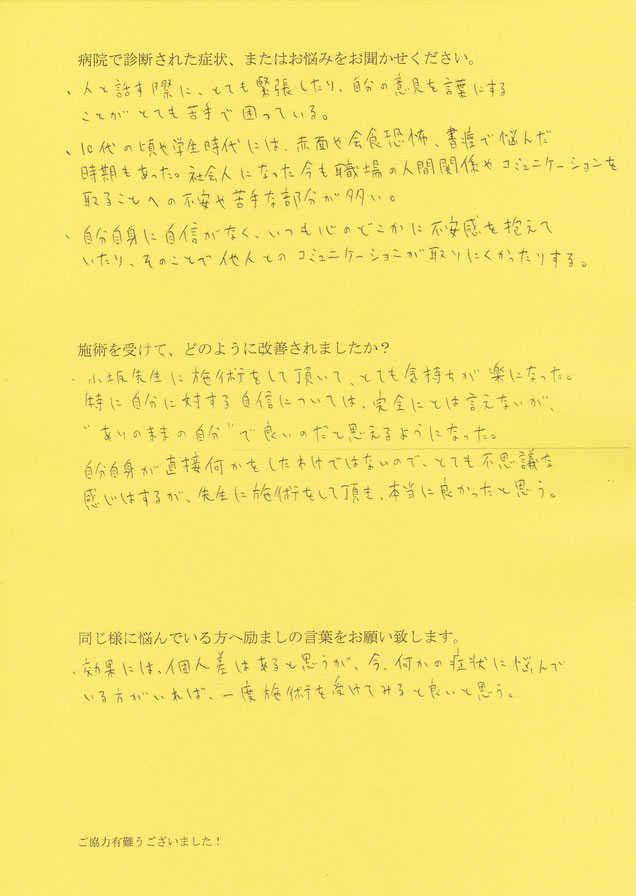 病院で診断された症状、またはお悩みをお聞かせください。
、人と話す際に、とても緊張したり、自分の意見を言葉にする
ことがとても苦手で困っている。
、10代の頃や学生時代には、赤面や会食恐怖、書痙で悩んだ
時期もあった。社会人になった今も職場の人間関係やコミュニケーションを
取ることへの不安や苦手な部分が多い。
、自分自身に自信がなく、いつも心のどこかに不安感を抱えて
いたり、そのことで他人とのコミュニケーションが取りにくかったりする。
施術を受けて、どのように改善されましたか？
・小坂先生に施術をして頂いて、とても気持ちが楽になった。
特に自分に対する自信については、完全にとは言えないが、
“ありのままの自分”で良いのだと思えるようになった。
自分自身が直接何かをしたわけではないので、とても不思議な
感じはするが、先生に施術をして頂き、本当に良かったと思う。
同じ様に悩んでいる方へ励ましの言葉をお願い致します。
、効果には、個人差はあると思うが、今、何かの症状に悩んで
いる方がいれば、一度施術を受けてみると良いと思う。
ご協力有難うございました！